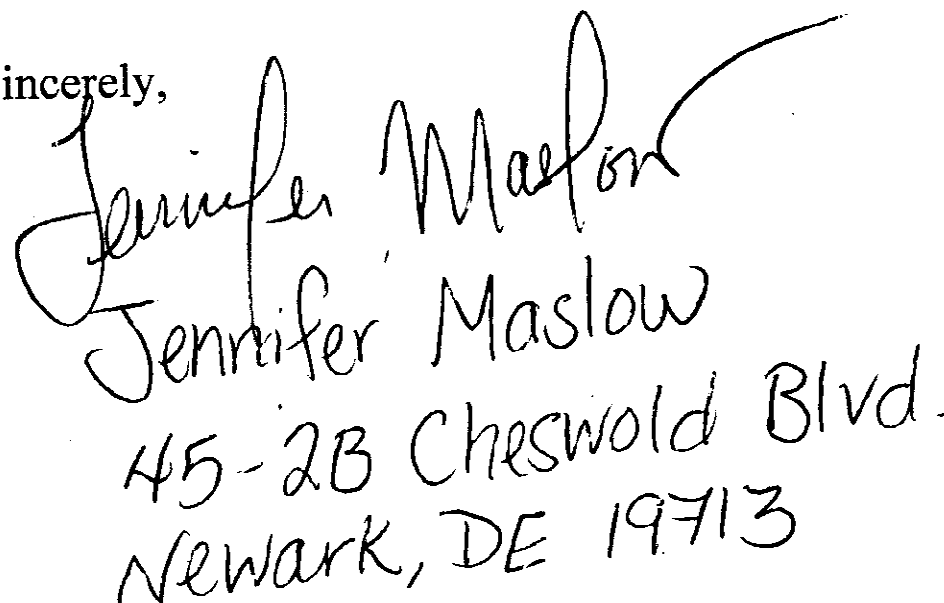 incerely,
Jennifer Maslow
Jennifer Maslow
45-2B Cheswold Blvd.
Newark, DE 19713